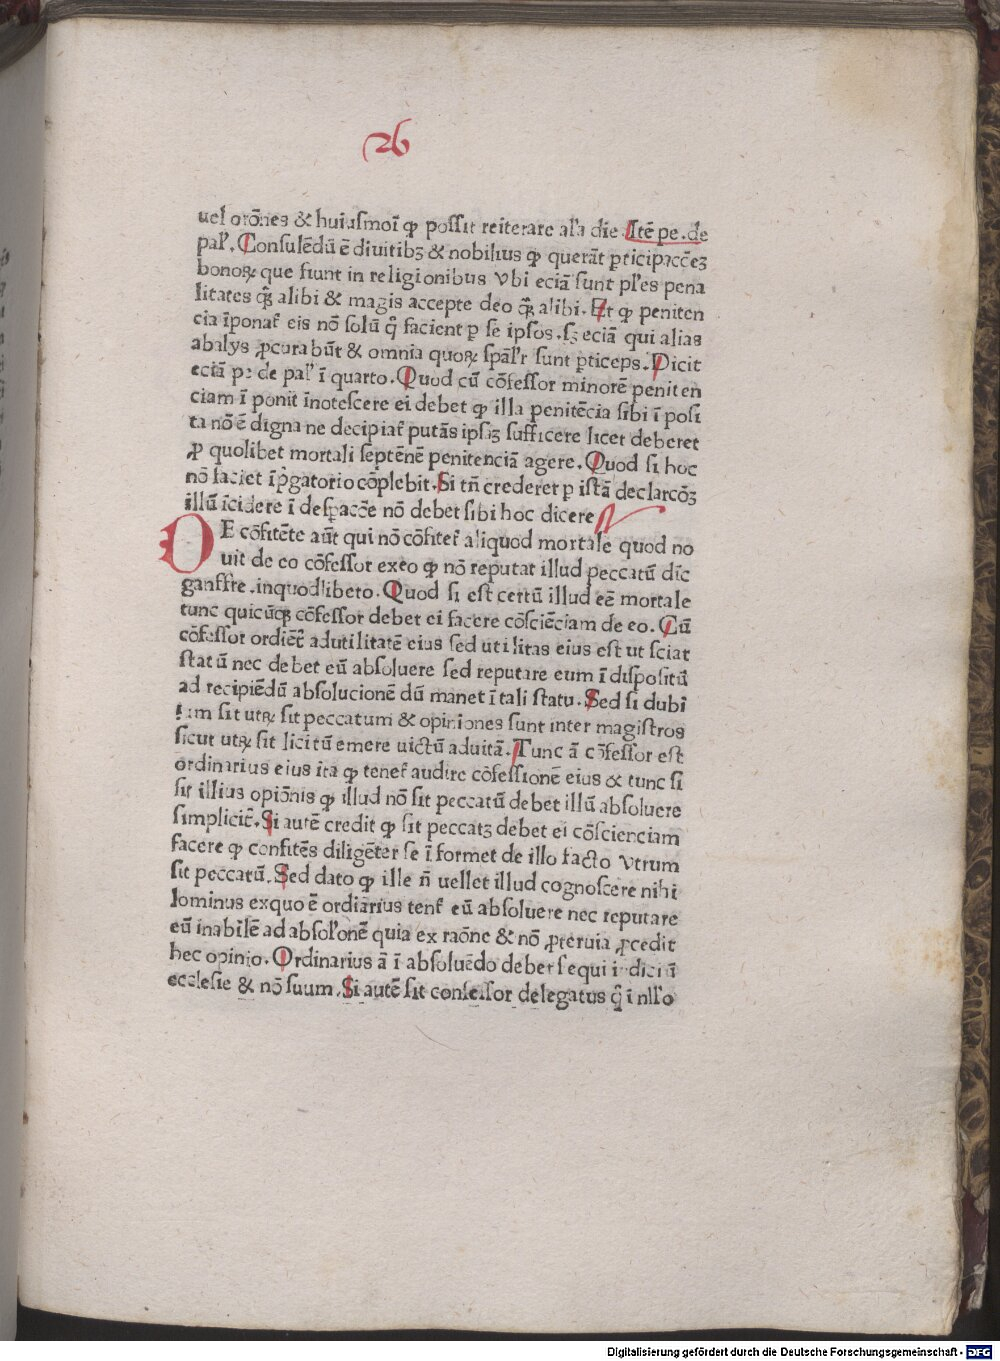 26
uel orōnes & huiusmōi ꝙ possit reiterare al'a die Itē pe. de
pal'. Consulēdū ē diuitibꝫ & nobilius ꝙ querāt ꝑticipacc̄eꝫ
bonoꝝ que fiunt in religionibus vbi eciā sunt pl'es pena
litates qͣꝫ alibi & magis accepte deo qͣꝫ alibi. Et ꝙ peniten
cia īponat̄ eis nō solū q̄ facient ꝑ se ipsos. sꝫ eciā qui alias
abalys ꝓcurabūt & omnia quoꝝ spāl'r sunt ꝑticeps. Dicit
eciā p: de pal' ī quarto. Quod cū cōfessor minorē peniten
ciam ī ponit īnotescere ei debet ꝙ illa penitēcia sibi ī posi
ta nō ē digna ne decipiat̄ putās ipsaꝫ sufficere licet deberet
ꝓ quolibet mortali septēnē penitenciā agere. Quod si hoc
nō faciet īp̄gatorio cōplebit. Si tn̄ crederet ꝑ istā declarcōꝫ
illū īcidere ī despacc̄e nō debet sibi hoc dicere
DE cōfitēte aūt qui nō cōfitet̄ aliquod mortale quod no
uit de eo cōfessor exeo ꝙ nō reputat illud peccatū dīc
ganffre. inquodlibeto. Quod si est certū illud eē mortale
tunc quicūqꝫ cōfessor debet ei facere cōsciēciam de eo. Cū
cōfessor ordiēt̄ adutilitatē eius sed utilitas eius est ut sciat
statū nec debet eū absoluere sed reputare eum ī dispositū
ad recipiēdū absolucionē dū manet ī tali statu. Sed si dubi
um sit utꝝ sit peccatum & opiniones sunt inter magistros
sicut utꝝ sit licitū emere uictū aduitā. Tunc ā cōfessor est
ordinarius eius ita ꝙ tenet̄ audire cōfessionē eius & tunc si
sit illius opiōnis ꝙ illud nō sit peccatū debet illū absoluere
simplicit̄. Si autē credit ꝙ sit peccatꝫ debet ei cōscienciam
facere ꝙ confitēs diligēter se ī formet de illo facto vtrum
sit peccatū. Sed dato ꝙ ille n̄ uellet illud cognoscere nihi
lominus exquo ē ordiārius tent̄ eū absoluere nec reputare
eū inabilē ad absol'onē quia ex raōne & nō ꝓteruia ꝓcedit
hec opinio. Ordinarius ā ī absoluēdo debet sequi indiciū
ecclesie & nō suum. Si autē sit confessor delegatus q̄ ī nll'o
Digitalisierung gefördert durch die Deutsche Forschungsgemeinschaft - DFG